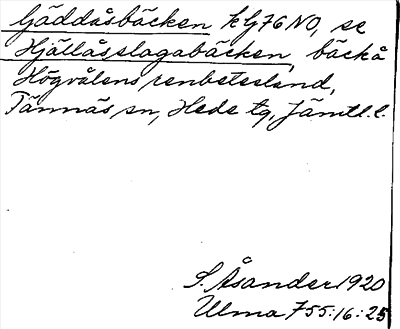 Gäddåsbäcken kG76NO, se
Hjällåsslagabäcken, bäck å
Högvålens renbetesland,
Tännäs sn, Hede tg, Jämtl. l.
S. Åsander 1920
Ulma 755:16:25